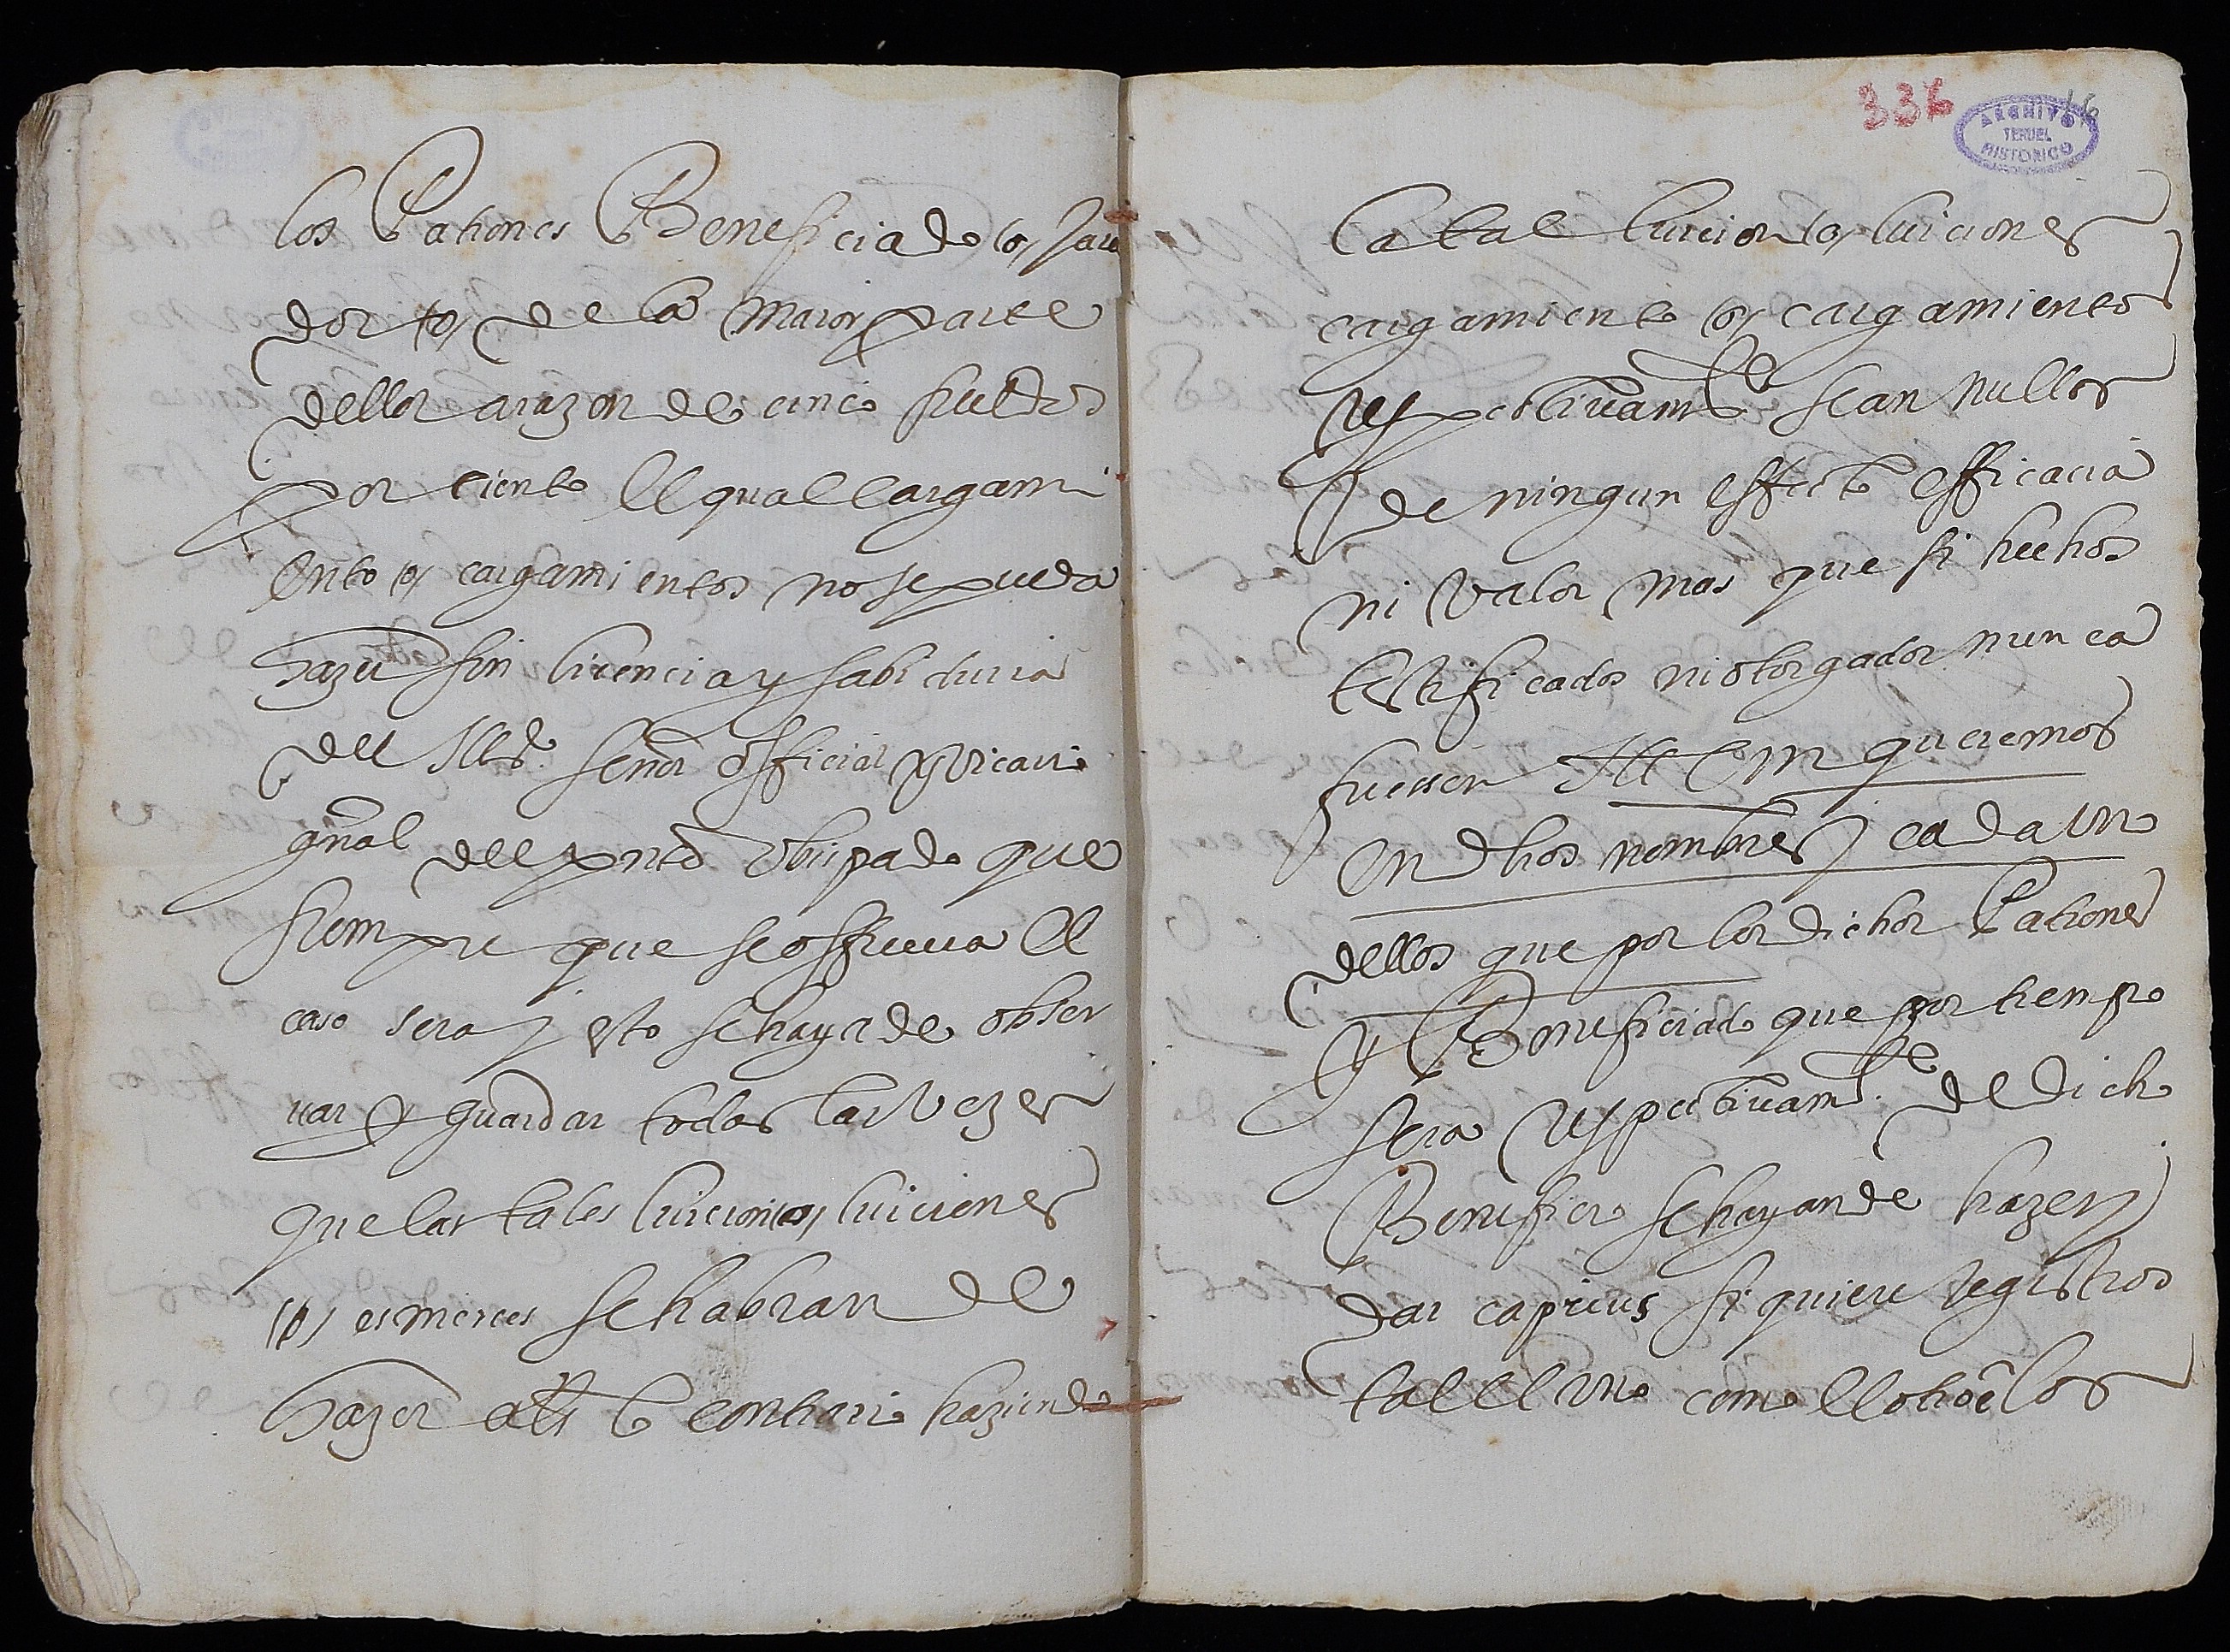 los Patrones Beneficiado (o) Jura
dor (o) de la maior parte
dellos a razon de cinco sueldos
por ciento el qual cargami
ento (o) cargamientos no se pueda
hazer sin licencia y sabiduria
del Ille. señor official y vicario
gñal del pnte obispado que
siempre que se offreciera el
caso sera y esto se haya de obser
uar y guardar todas las vezes
que las tales luicion (o) luiciones
(o) esmerces se habran de
hazer et lo contrario haziendo
336
ARCHIVO
TERUEL
HISTORICO
la tal luicion (o) luiciones
cargamiento (o) cargamientos
respectiuamte sean nullos
y de ningun effecto efficacia
ni valor mas que si hechos
testificados ni otorgados nunca
fuessen Ittem queremos
en dhos nombres y cada vno
dellos que por los dichos Patrones
y Beneficiado que por tiempo
sera respectiuamte. de dicho
Beneficio se hayan de hazer y
dar capreus si quiere registros
tal el vno como el otro ē los